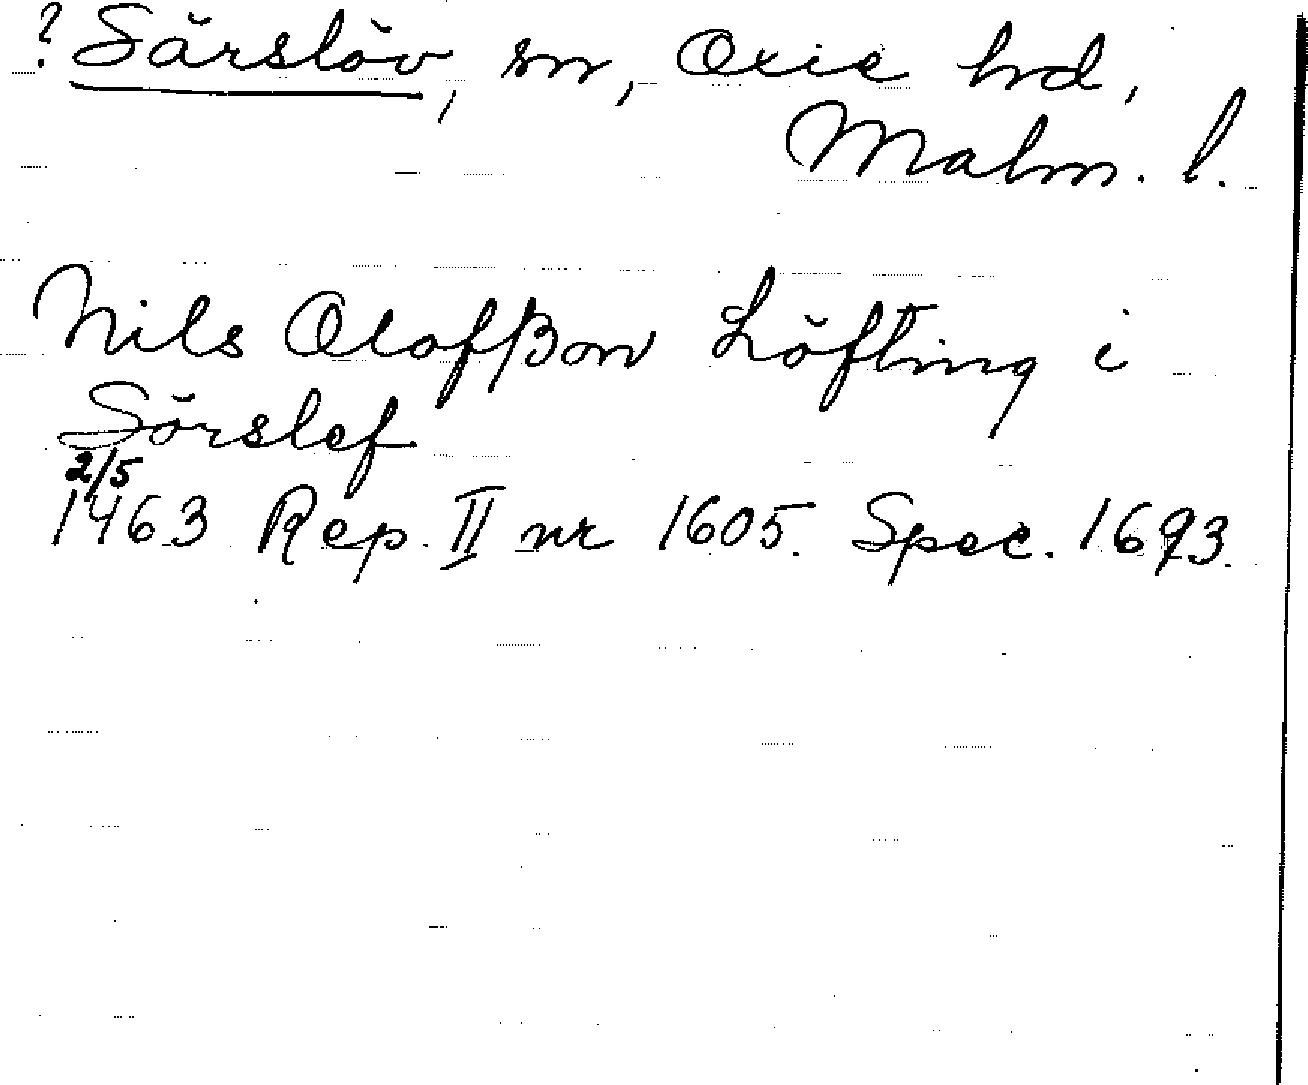 ? Särslöv, sn, Oxie hd,
Malm. l.
Nils Olofßon Löfting i
Sörslef
2/5
1463 Rep. II nr 1605. Spec. 1693.